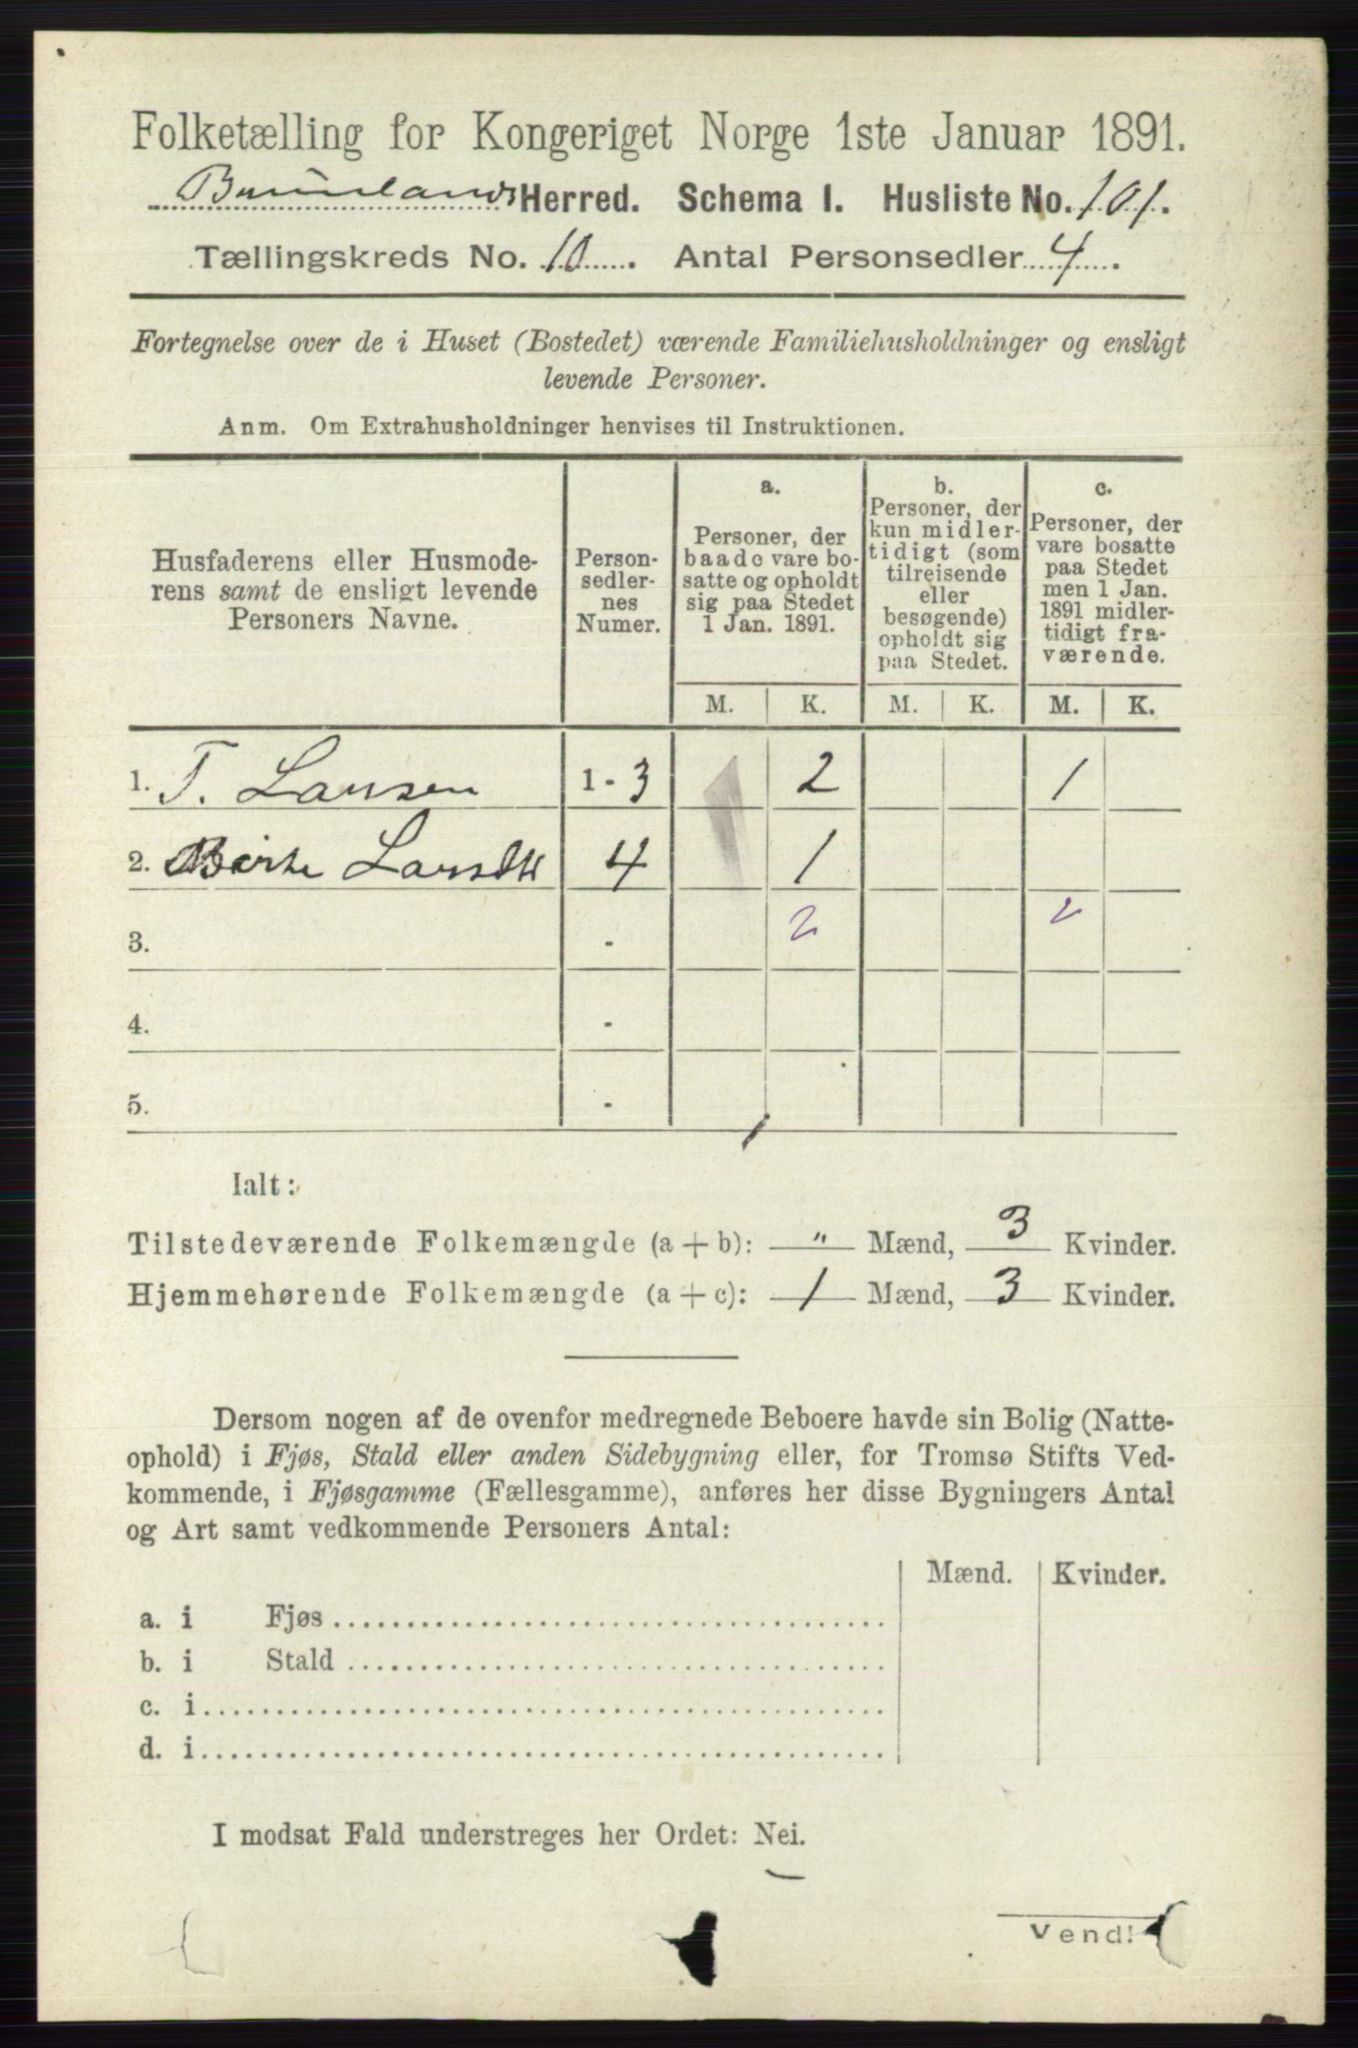 Folketælling for Kongeriget Norge 1ste Januar 1891.
Brunlands Herred. Schema I. Husliste No. 101.
Tællingskreds No. 10. Antal Personsedler 4.
Fortegnelse over de i Huset (Bostedet) værende Familiehusholdninger og ensligt
levende Personer.
Anm. Om Extrahusholdninger henvises til Instruktionen.
Husfaderens eller Husmode-
rens samt de ensligt levende
Personers Navne.
Person-
sedler-
nes
Numer.
a.
Personer, der
baade vare bo-
satte og opholdt
sig paa Stedet
1 Jan. 1891.
b.
Personer, der
kun midler-
tidigt (som
tilreisende
eller
besøgende)
opholdt sig
paa Stedet.
c.
Personer, der
vare bosatte
paa Stedet
men 1 Jan.
1891 midler-
tidigt fra-
værende.
M. K. M. K. M. K.
1. T. Larsen 1 - 3 2 1
2. Larsdtr 4 1
3. - 2 2
4. -
5. -
Ialt:
Tilstedeværende Folkemængde (a + b): „ Mænd, 3 Kvinder.
Hjemmehørende Folkemængde (a + c): 1 Mænd, 3 Kvinder.
Dersom nogen af de ovenfor medregnede Beboere havde sin Bolig (Natte-
ophold) i Fjøs, Stald eller anden Sidebygning eller, for Tromsø Stifts Ved-
kommende, i Fjøsgamme (Fællesgamme), anføres her disse Bygningers Antal
og Art samt vedkommende Personers Antal:
Mænd. Kvinder.
a. i Fjøs
b. i Stald
c. i
d. i
I modsat Fald understreges her Ordet: Nei.
Vend!